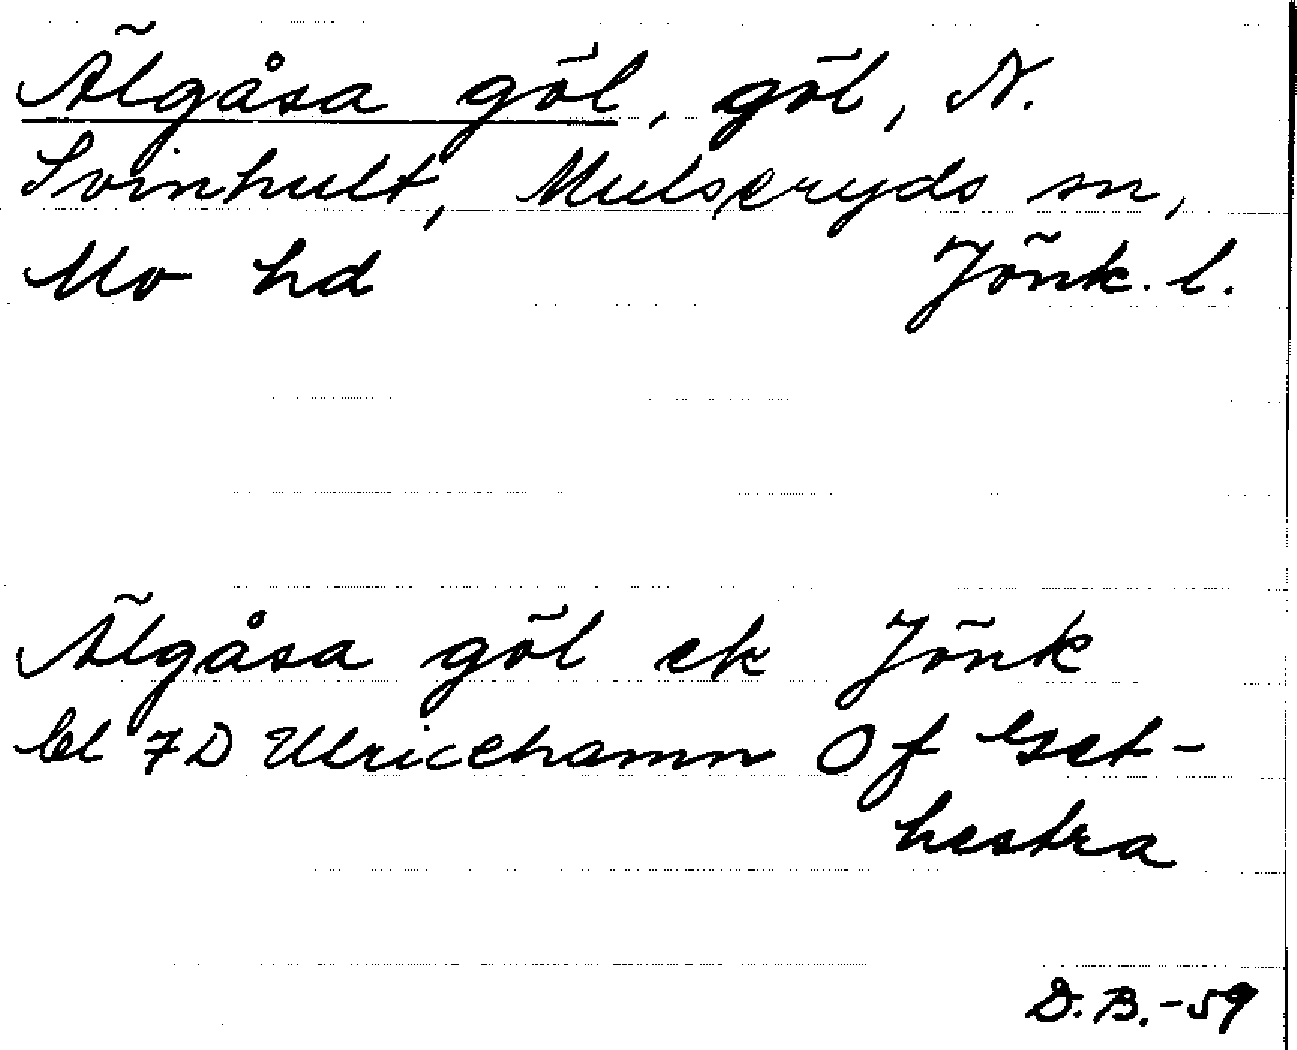 Älgåsa göl, göl, N.
Svinhult, Mulseryds sn,
Mo hd Jönk. l.
Älgåsa göl ek Jönk
bl 7D Ulricehamn Of Get-
hestra
D.B.-59